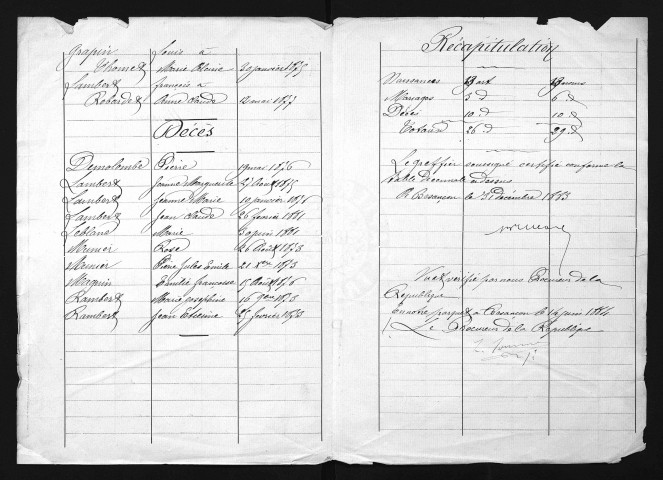 Grapin Louis à
Thomet Marie 30 janvier 1875
Lambert françois à
Robardet Anne Claude 12 mai 1877
Décès
Demolombe Pierre 19 mai 1876
Lambert Jeanne Marguerite 27 Août 1875
Lambert Jeanne Marie 10 janvier 1876
Lambert Jean Claude 26 février 1881
Leblanc Marie 30 juin 1881
Meunier Rose 26 Août 1873
Meunier Pierre Jules Emile 21 Xbre 1873
Maguin Emilie françoise 15 Août 1876
Rambert Marie Josephine 16 9bre 1878
Rambert Jean Etienne 25 février 1873
Récapitulation
Naissances
Mariages 3 d 6 d
Décès 10 d 10 d
Totaux 26 d 29 d
Le greffier soussigné certifie conforme la
table décennale ci dessus
A Besançon le 31 décembre 1883
Vu et vérifié par nous Procureur de la
République
En notre parquet à Besançon le 14 juin 1884
Le Procureur de la République